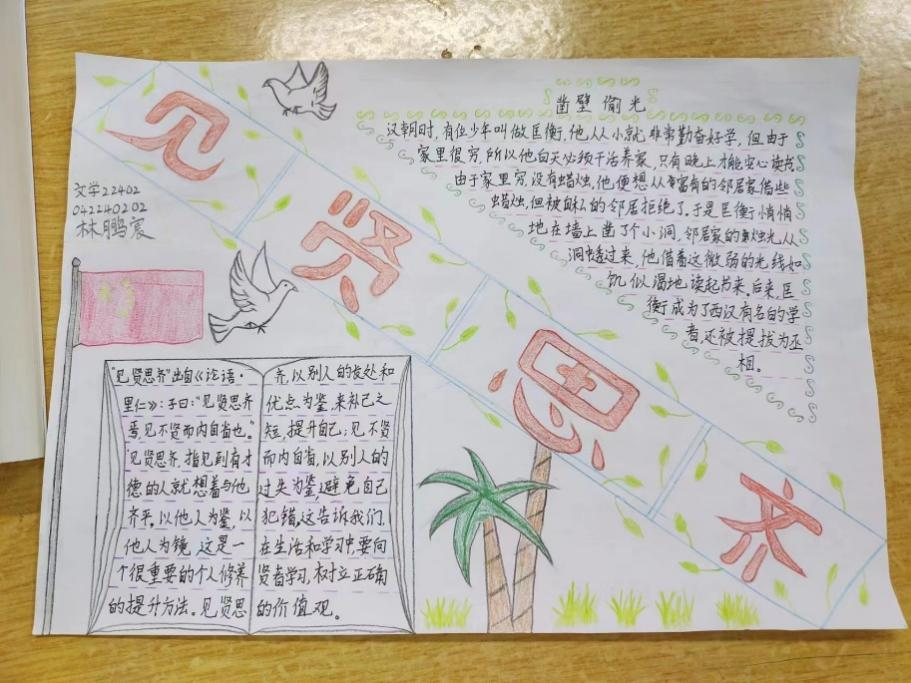 见贤思齐
凿壁偷光
汉朝时,有位少年叫做匡衡,他从小就非常勤奋好学,但由于
家里很穷,所以他白天必须干活养家,只有晚上才能安心读书,
由于家里穷,没有蜡烛,他便想从富有的邻居家借些
蜡烛,但被自私的邻居拒绝了,于是匡衡悄悄
地在墙上凿了个小洞,邻居家的烛光从
洞中透过来,他借着这微弱的光线如
饥似渴地读起书来。后来,匡
衡成为了西汉有名的学
者,还被提拔为丞
相。
文学22402
042240202
林鹏宸
“见贤思齐”出自《论语·
里仁》:子曰:“见贤思齐
焉,见不贤而内自省也。”
“见贤思齐,指见到有才
德的人就想着与他
齐平。以他人为鉴,以
他人为镜,这是一
个很重要的个人修养
的提升方法。见贤思
齐,以别人的长处和
优点为鉴,来补己之
短,提升自己;见不贤
而内自省,以别人的
过失为鉴,避免自己
犯错,这告诉我们,
在生活和学习中,要向
贤者学习,树立正确
的价值观。